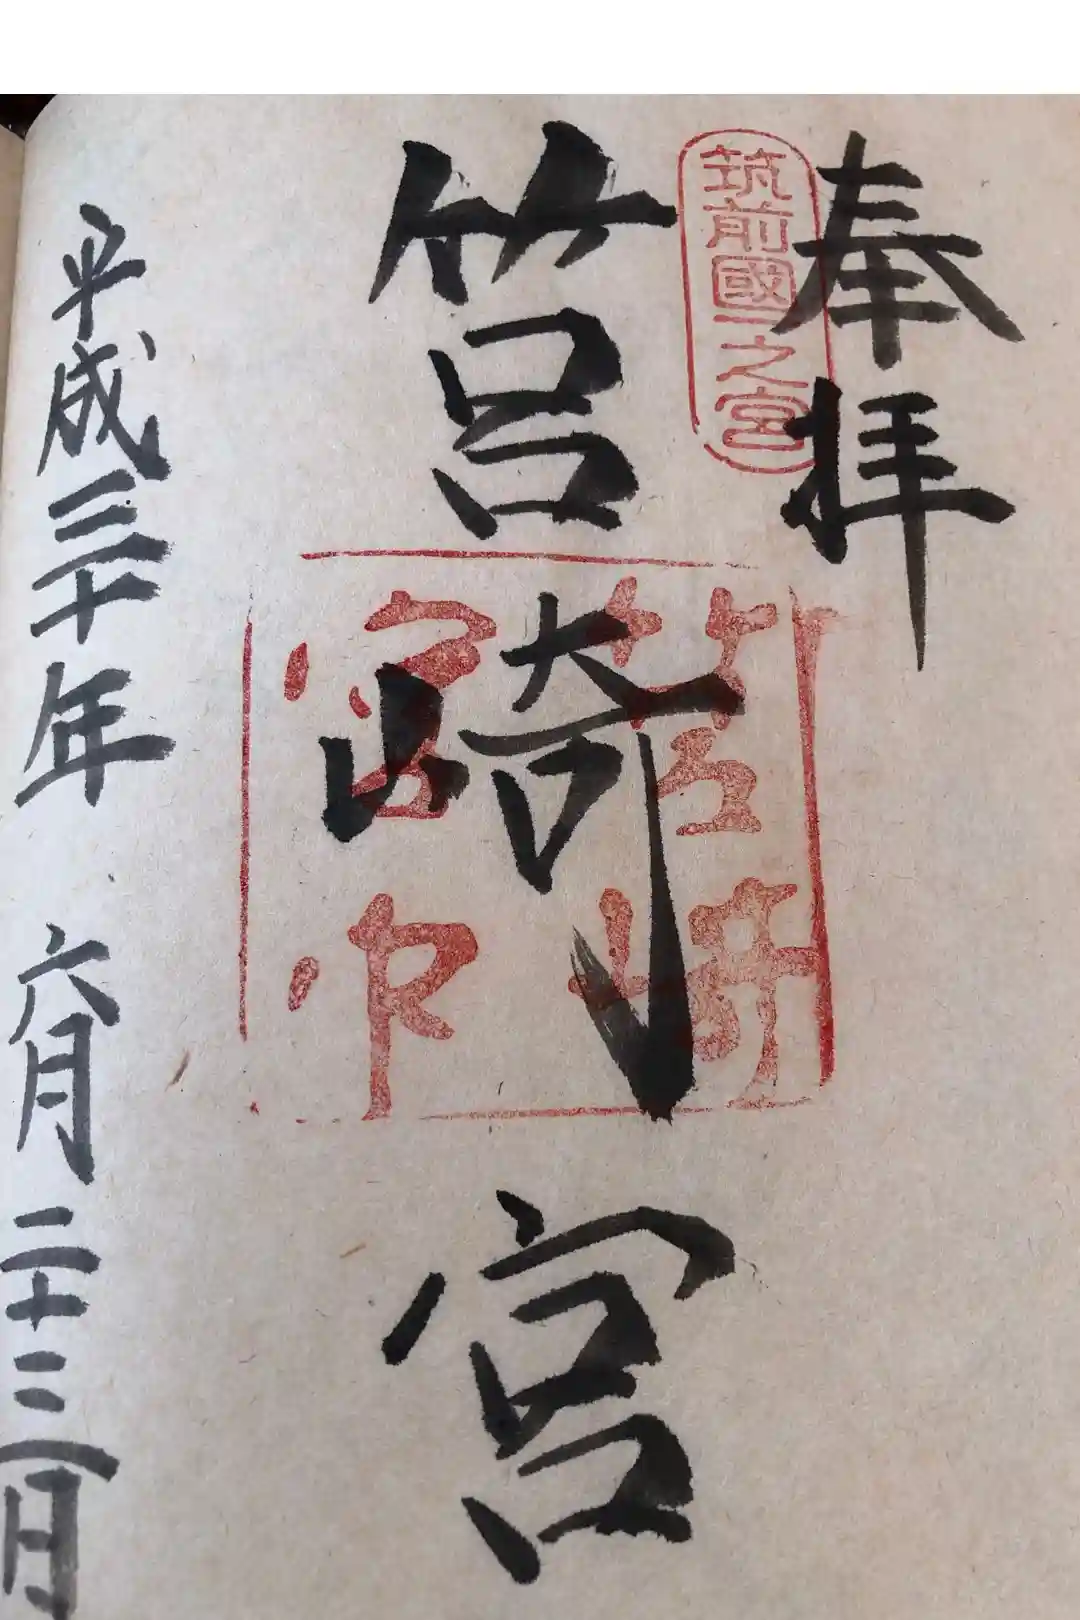 奉拝
筑前國一之宮
筥崎宮
筥崎
宮印
平成三十年 六月二十三日